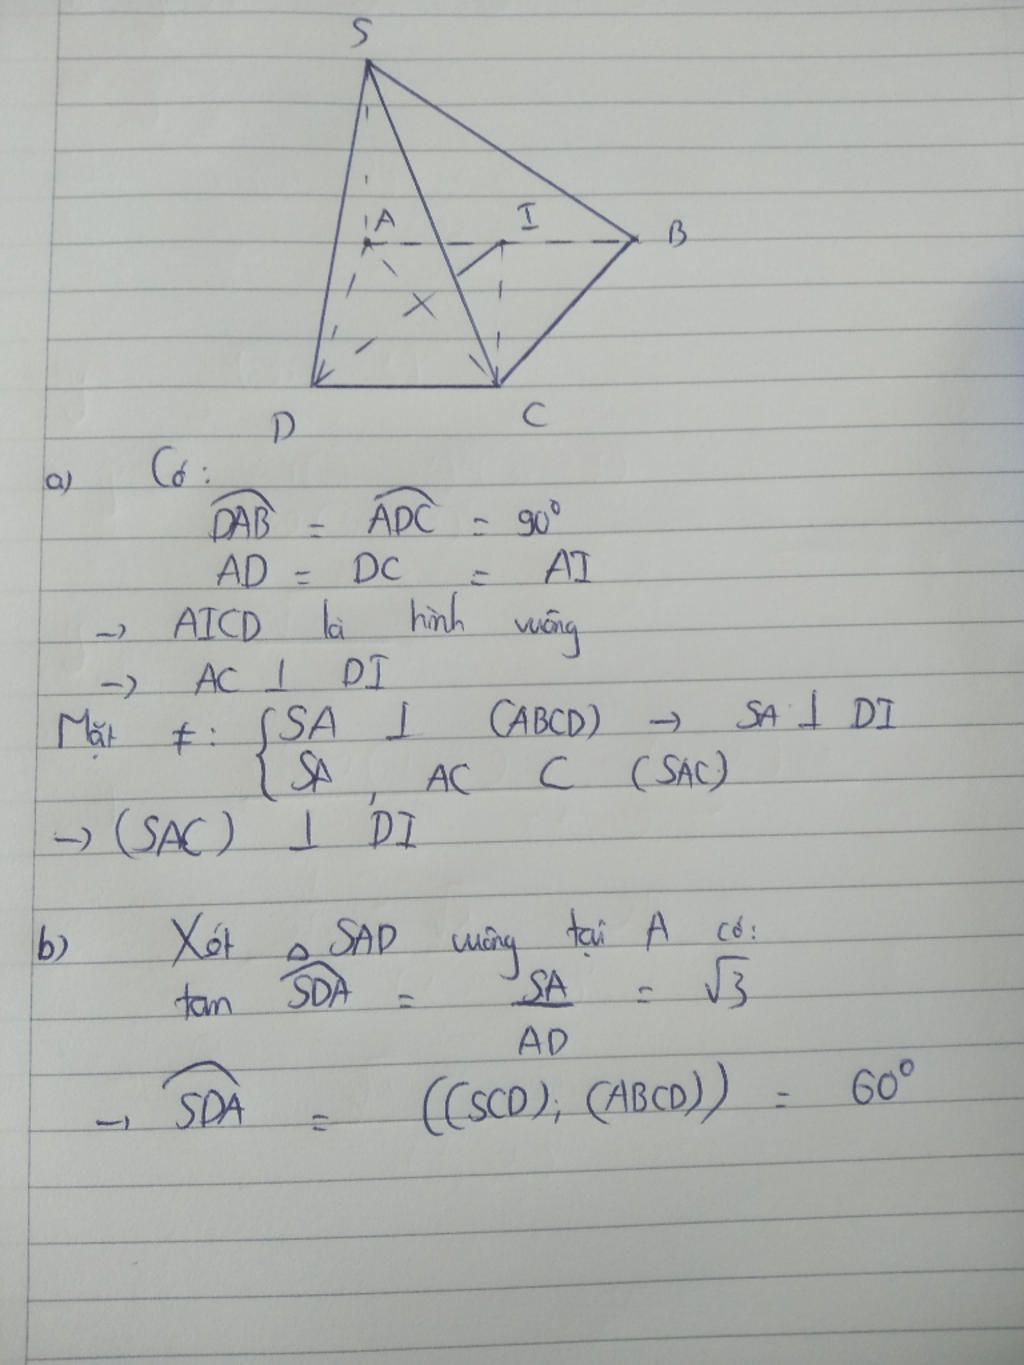 S
A
I
B
D
C
a) Có:
DAB = ADC = 90°
AD = DC = AI
→ AICD là hình vuông
→ AC ⊥ DI
Mặt ≠: { SA ⊥ (ABCD) → SA ⊥ DI
SA, AC ⊂ (SAC)
→ (SAC) ⊥ DI
b) Xét △ SAD vuông tại A có:
tan SDA = SA/AD = √3
→ SDA = ((SCD); (ABCD)) = 60°